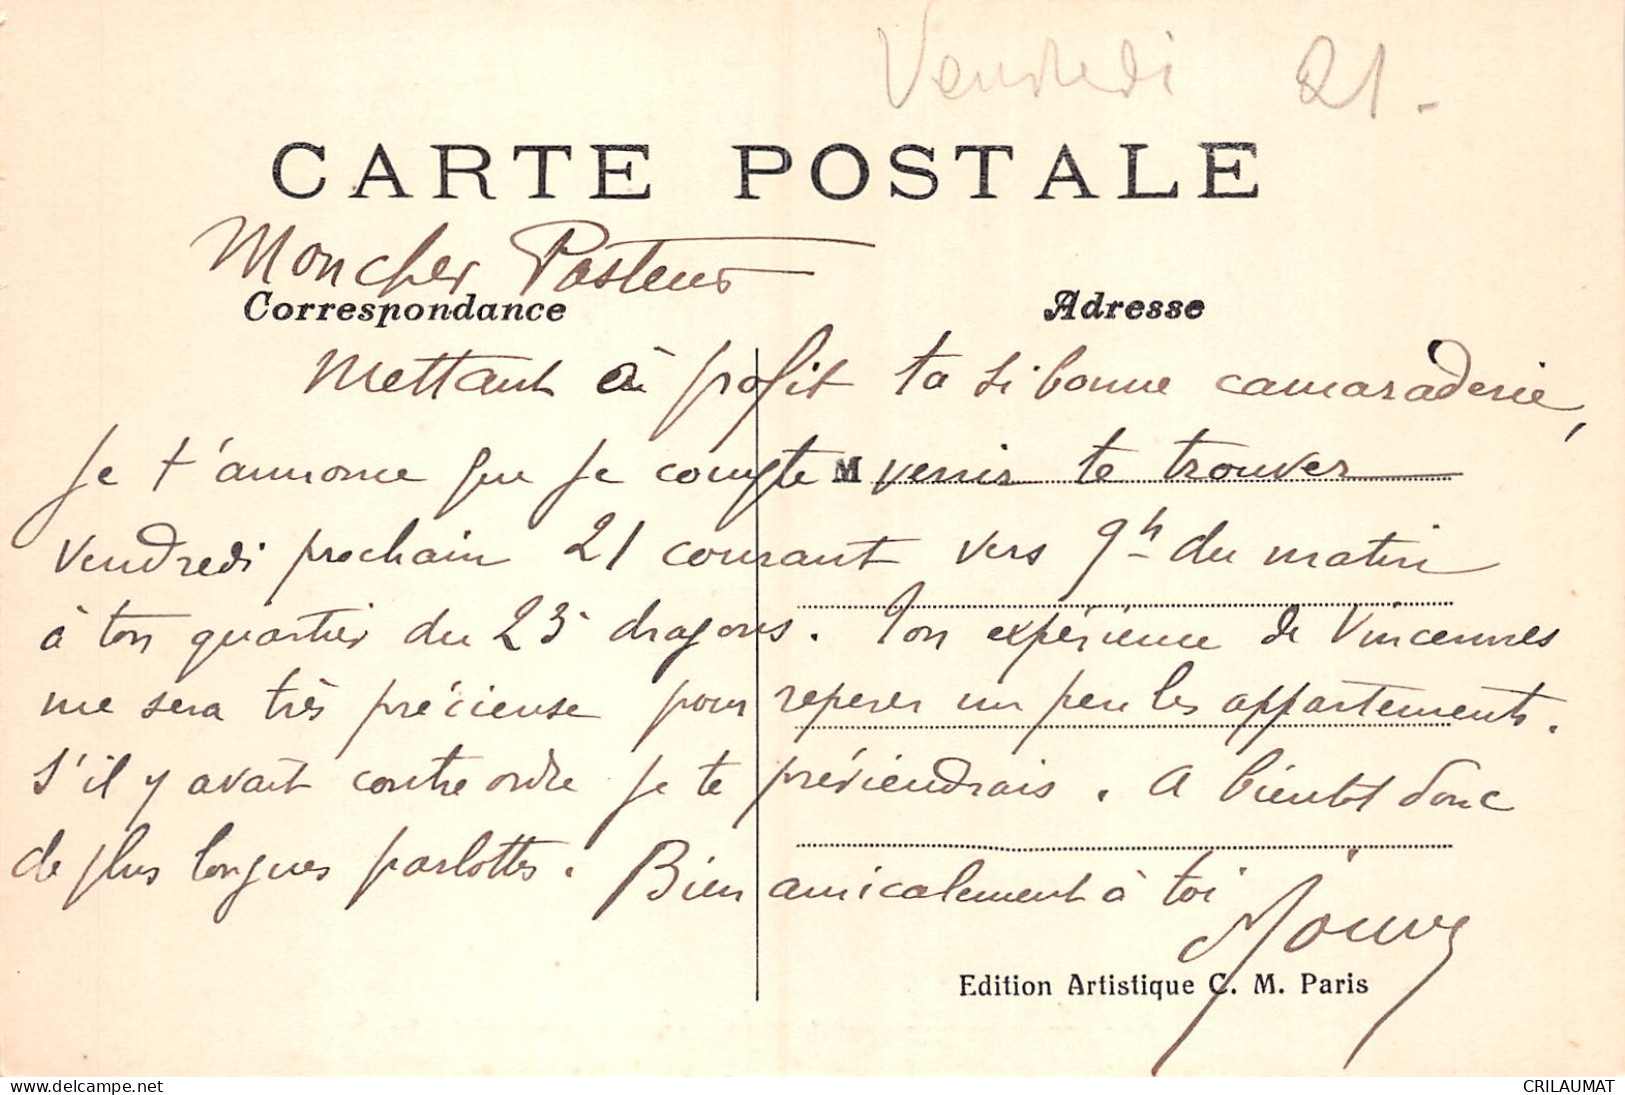 Vendredi 21.
CARTE POSTALE
Mon cher Pasteur
Correspondance
Adresse
Mettant à profit ta si bonne camaraderie,
je t'annonce que je compte M venir te trouver
vendredi prochain 21 courant vers 9h du matin
à ton quartier du 23e dragons. Ton expérience de Vincennes
me sera très précieuse pour reperer un peu les appartements.
S'il y avait contre ordre je te préviendrais. A bientôt donc
de plus longues parlottes. Bien amicalement à toi
Edition Artistique C. M. Paris
www.delcampe.net
CRILAUMAT